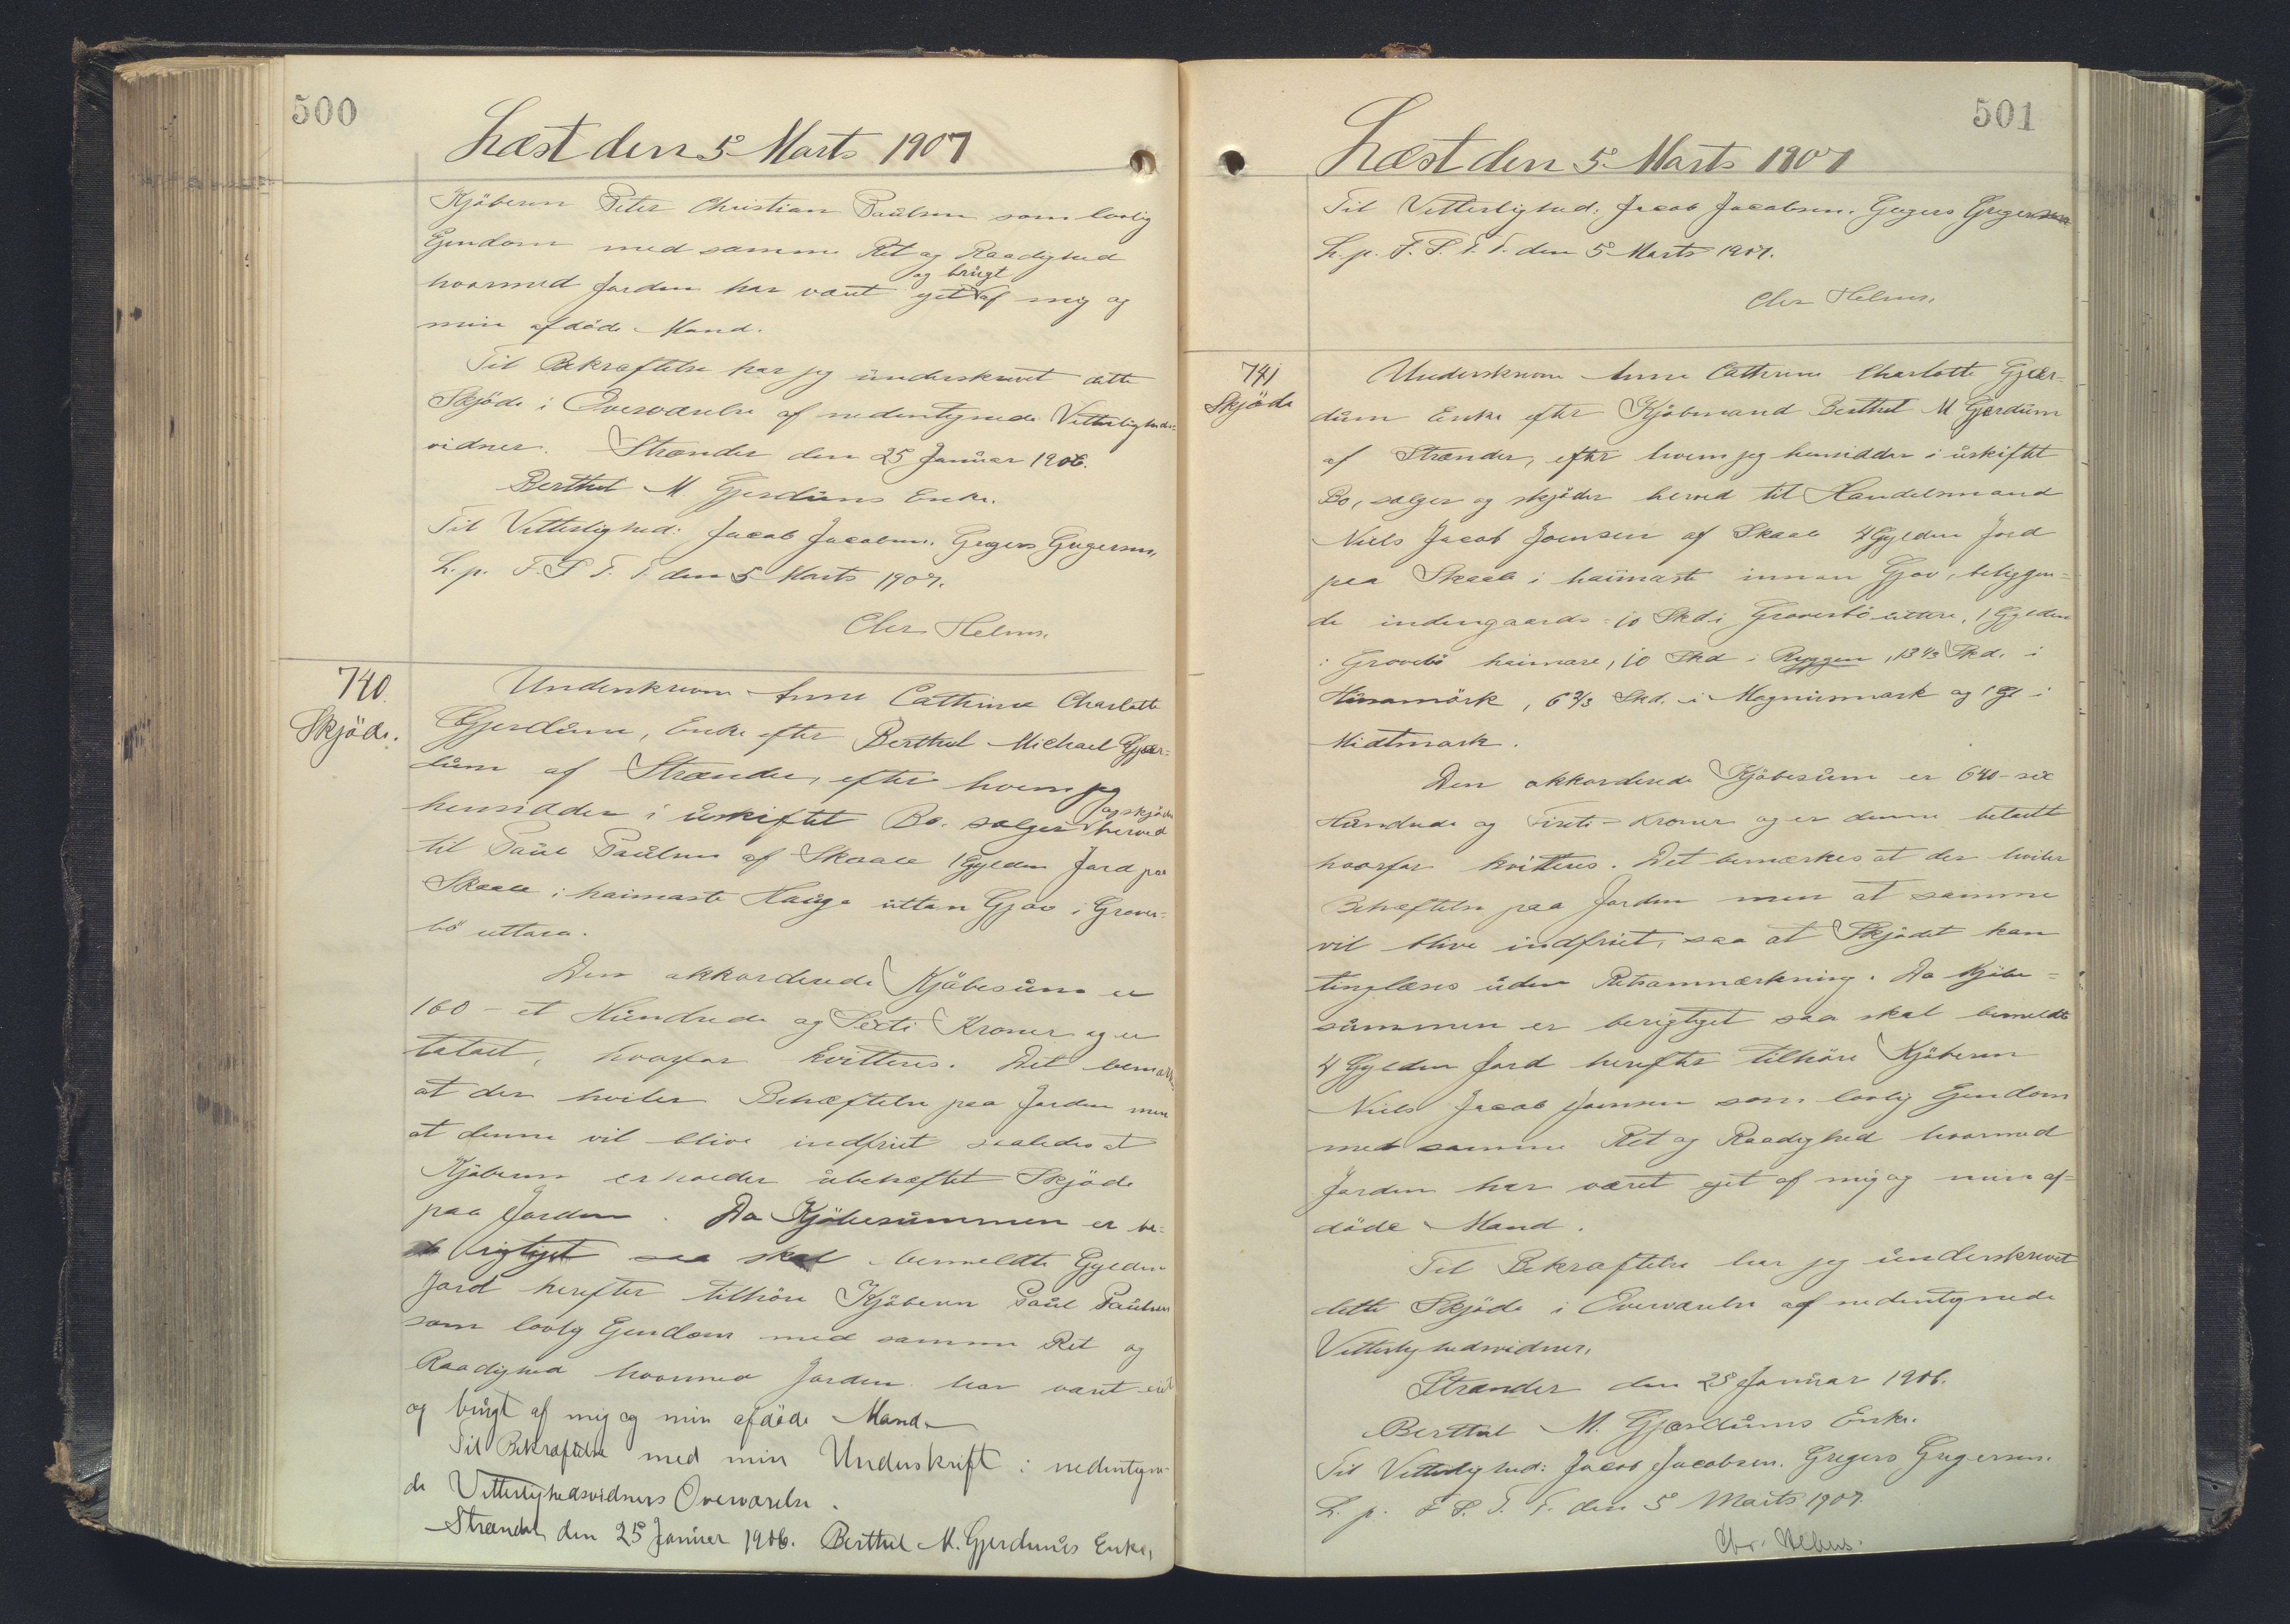 500
Læst den 5 Marts 1907
Kjöberen Peter Christian Paulsen som lovlig
Ejendom med samme Ret og Raadighed
hvormed Jorden har været ejet og brugt af mig og
min afdöde Mand.
Til Bekræftelse har jeg underskrevet dette
Skjöde i Overværelse af nedentegnede Vitterligheds-
vidner. Strænder den 25 Januar 1906.
Berthel M Gjerdums Enke.
Til Vitterlighed: Jacob Jacobsen. Gregers Gregersen.
L. p. F. S. T. T. den 5 Marts 1907.
Chr Helms.
740.
Skjöde.
Underskrevne Anne Cathrine Charlotte
Gjerdum, Enke efter Berthel Michael Gjær-
dum af Strænder, efter hvem jeg
hensidder i uskiftet Bo. sælger og skjöder herved
til Paul Paulsen af Skaale 1 Gylden Jord paa
Skaale i haimasta Hauga uttan Gjov i Grover-
bö uttara.
Den akkorderede Kjöbesum er
160 - et Hundrede og Sexti Kroner og er
betalt, hvorfor kvitteres. Det bemærk.
at der hviler Behæftelse paa Jorden men
at denne vil blive indfriet saaledes at
Kjöberen erholder ubehæftet Skjöde
paa Jorden. Da Kjöbesummen er be-
rigtiget saa skal bemeldte Gylden
Jord herefter tilhöre Kjöberen Paul Paulsen
som lovlig Ejendom med samme Ret og
Raadighed hvormed Jorden har været ejet
og brugt af mig og min afdöde Mand.
Til Bekræftelse med min Underskrift i nedentegne-
de Vitterlighedsvidners Overværelse.
Strænder den 25 Januar 1906. Berthel M. Gjerdums Enke,
501
Læst den 5 Marts 1907
Til Vitterlighed: Jacob Jacobsen. Gregers Gregersen
L. p. F. S. T. T. den 5 Marts 1907.
Chr Helms.
741
Skjöde
Underskrevne Anne Cathrine Charlotte Gjær-
dum Enke efter Kjöbmand Berthel M Gjerdum
af Strænder, efter hvem jeg hensidder i uskiftet
Bo, sælger og skjöder herved til Handelsmand
Niels Jacob Joensen af Skaale 4 Gylden Jord
paa Skaale i haimasta innan Gjov, beliggen-
de indengaards 10 Skd i Groverbö uttara, 1 Gylden
i Groverbö haimare, 10 Skd i Ryggen, 13 1/3 Skd. i
Hunamörk, 6 2/3 Skd. i Magnusmark og 1 Gl i
Midtmark.
Den akkorderede Kjöbesum er 640 - sex
Hundrede og Fireti - Kroner og er denne betalt
hvorfor kvitteres. Det bemærkes at der hviler
Behæftelse paa Jorden men at samme
vil blive indfriet, saa at Skjödet kan
tinglæses uden Retsanmærkning. Da Kjöbe-
summen er berigtiget saa skal bemeldte
4 Gylden Jord herefter tilhöre Kjöberen
Niels Jacob Joensen som lovlig Ejendom
med samme Ret og Raadighed hvormed
Jorden har været ejet af mig og min af-
döde Mand.
Til Bekræftelse har jeg underskrevet
dette Skjöde i Overværelse af nedentegnede
Vitterlighedsvidner.
Strænder den 25 Januar 1906.
Berthel M. Gjærdums Enke.
Til Vitterlighed: Jacob Jacobsen. Gregers Gregersen.
L. p. F. S. T. T. den 5 Marts 1907.
Chr. Helms.